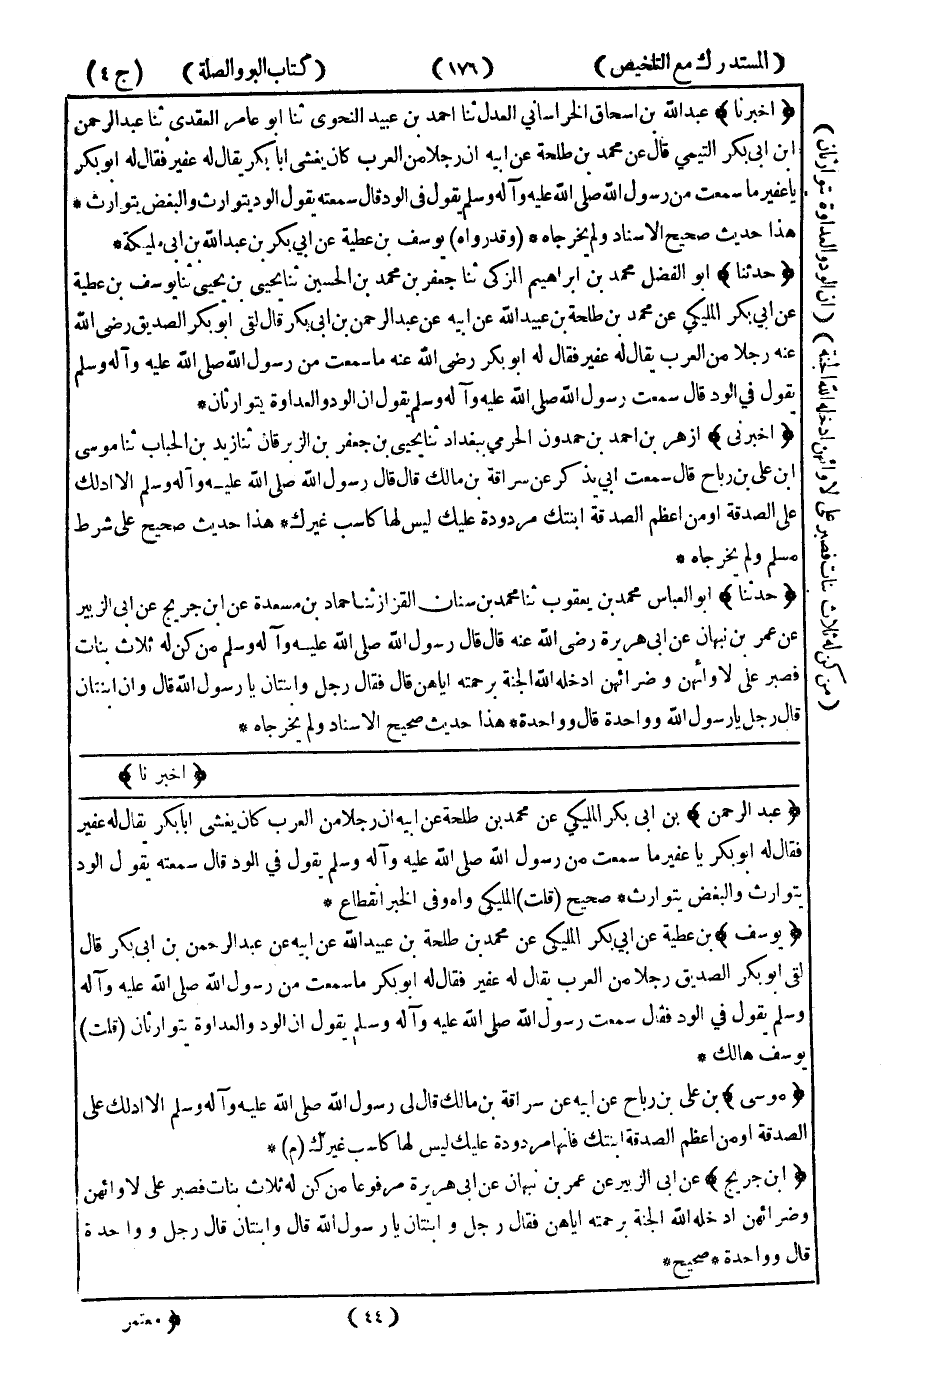 (المستدرك مع التلخيص) (١٧٦) (كتاب البر والصلة) (ج ٤)
﴿ اخبرنا ﴾ عبدالله بن اسحاق الخراساني العدل ثنا احمد بن عبيد النحوى ثنا ابو عامر العقدى ثنا عبدالرحمن
ابن ابى بكر التيمي قال عن محمد بن طلحة عن ابيه ان رجلا من العرب كان يغشى ابا بكر يقال له عفير فقال له ابوبكر
يا عفير ما سمعت من رسول الله صلى الله عليه وآله وسلم يقول فى الود قال سمعته يقول الود يتوارث والبغض يتوارث *
هذا حديث صحيح الاسناد ولم يخرجاه * (وقد رواه) يوسف بن عطية عن ابي بكر بن عبدالله بن ابى مليكة *
﴿ حدثنا ﴾ ابو الفضل محمد بن ابراهيم المزكى ثنا جعفر بن محمد بن الحسين ثنا يحيى بن يحيى ثنا يوسف بن عطية
عن ابي بكر المليكي عن محمد بن طلحة بن عبيد الله عن ابيه عن عبدالرحمن بن ابى بكر قال لقى ابو بكر الصديق رضى الله
عنه رجلا من العرب يقال له عفير فقال له ابو بكر رضى الله عنه ما سمعت من رسول الله صلى الله عليه وآله وسلم
يقول في الود قال سمعت رسول الله صلى الله عليه وآله وسلم يقول ان الود والعداوة يتوارثان *
﴿ اخبرنى ﴾ ازهر بن احمد بن حمدون الحرمي ببغداد ثنا يحيى بن جعفر بن الزبرقان ثنا زيد بن الحباب ثنا موسى
ابن على بن رباح قال سمعت ابي يذكر عن سراقة بن مالك قال قال رسول الله صلى الله عليه وآله وسلم الا ادلك
على الصدقة او من اعظم الصدقة ابنتك مردودة عليك ليس لها كاسب غيرك * هذا حديث صحيح على شرط
مسلم ولم يخرجاه *
﴿ حدثنا ﴾ ابو العباس محمد بن يعقوب ثنا محمد بن سنان القزاز ثنا حماد بن مسعدة عن ابن جريج عن ابى الزبير
عن عمر بن نبهان عن ابى هريرة رضى الله عنه قال قال رسول الله صلى الله عليه وآله وسلم من كن له ثلاث بنات
فصبر على لأوائهن وضرائهن ادخله الله الجنة برحمته اياهن قال فقال رجل وابنتان يا رسول الله قال وان ابنتان
قال رجل يا رسول الله وواحدة قال وواحدة * هذا حديث صحيح الاسناد ولم يخرجاه *
﴿ اخبرنا ﴾
﴿ عبد الرحمن ﴾ بن ابى بكر المليكي عن محمد بن طلحة عن ابيه ان رجلا من العرب كان يغشى ابابكر يقال له عفير
فقال له ابوبكر يا عفير ما سمعت من رسول الله صلى الله عليه وآله وسلم يقول في الود قال سمعته يقول الود
يتوارث والبغض يتوارث * صحيح (قلت) المليكي واه وفى الخبر انقطاع *
﴿ يوسف ﴾ بن عطية عن ابي بكر المليكي عن محمد بن طلحة بن عبيد الله عن ابيه عن عبدالرحمن بن ابى بكر قال
لقى ابو بكر الصديق رجلا من العرب يقال له عفير فقال له ابوبكر ما سمعت من رسول الله صلى الله عليه وآله
وسلم يقول في الود فقال سمعت رسول الله صلى الله عليه وآله وسلم يقول ان الود والعداوة يتوارثان (قلت)
يوسف هالك *
﴿ موسى ﴾ بن على بن رباح عن ابيه عن سراقة بن مالك قال لى رسول الله صلى الله عليه وآله وسلم الا ادلك على
الصدقة او من اعظم الصدقة ابنتك فانها مردودة عليك ليس لها كاسب غيرك (م) *
﴿ ابن جريج ﴾ عن ابى الزبير عن عمر بن نبهان عن ابى هريرة مرفوعا من كن له ثلاث بنات فصبر على لاوائهن
وضرائهن ادخله الله الجنة برحمته اياهن فقال رجل وابنتان يا رسول الله قال وابنتان قال رجل وواحدة
قال وواحدة * صحيح *
(ان الود والعداوة توارثان)
(من كن له ثلاث بنات فصبر على لاوائهن ادخله الله الجنة)
(٤٤)
﴿ معتمر